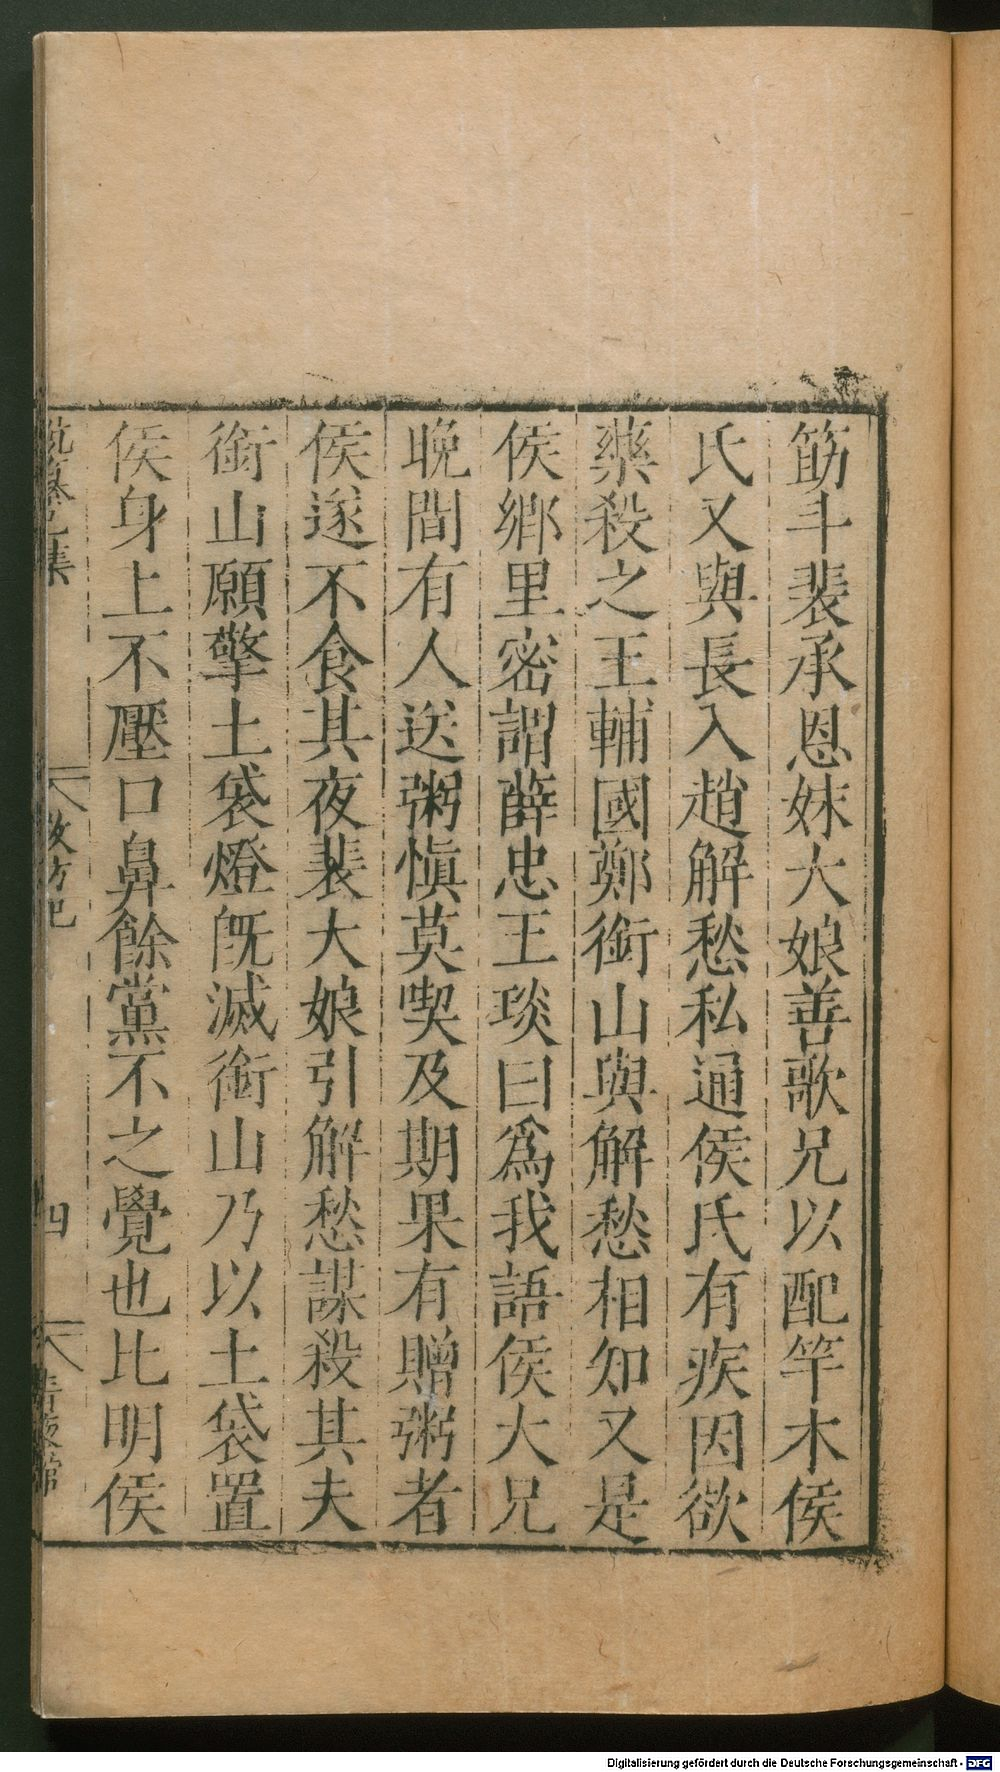 筋斗裴承恩妹大娘善歌兄以配竿木侯
氏又與長入趙解愁私通侯氏有疾因欲
藥殺之王輔國鄭銜山與解愁相知又是
侯鄉里密謂薛忠王琰曰爲我語侯大兄
晚間有人送粥慎莫喫及期果有贈粥者
侯遂不食其夜裴大娘引解愁謀殺其夫
銜山願擎土袋燈既滅銜山乃以土袋置
侯身上不壓口鼻餘黨不之覺也比明侯
教坊記
四
Digitalisierung gefördert durch die Deutsche Forschungsgemeinschaft - DFG